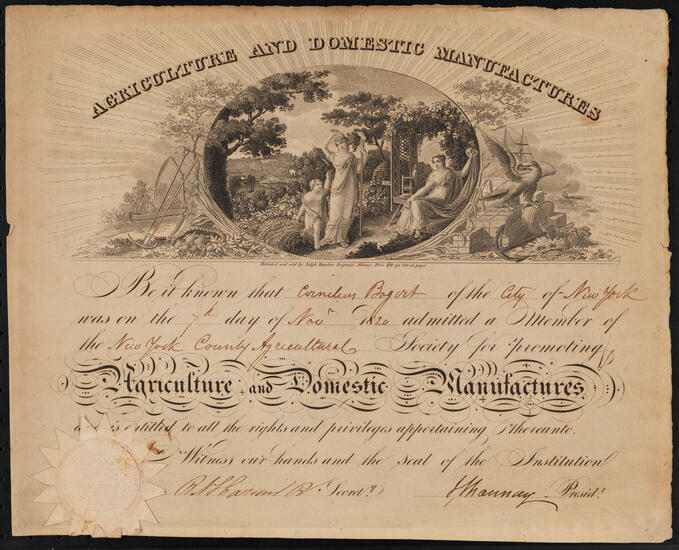 AGRICULTURE AND DOMESTIC MANUFACTURES
Published and sold by Ralph Rawdon Engraver Albany
Be it known that Cornelius Bogert of the City of New York
was on the 7th day of Novr 1820 admitted a Member of
the New York County Agricultural Society for promoting
Agriculture and Domestic Manufactures
and is entitled to all the rights and privileges appertaining thereunto.
Witness our hands and the seal of the Institution
Secrety
Presidt